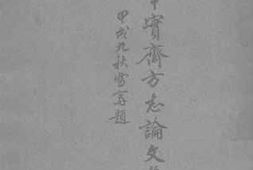 章實齋方志論文
甲戌九秋
題